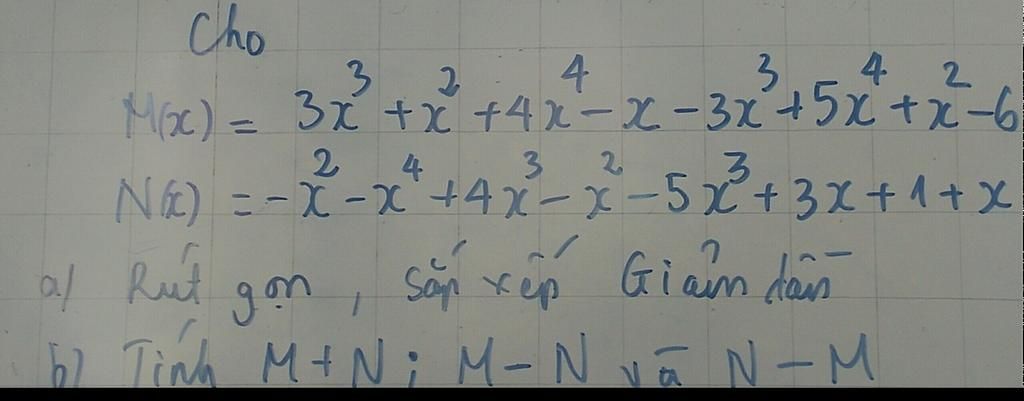 Cho
M(x) = 3x³ + x² + 4x⁴ - x - 3x³ + 5x⁴ + x² - 6
N(x) = -x² - x⁴ + 4x³ - x² - 5x³ + 3x + 1 + x
a) Rút gọn, sắp xếp Giảm dần
b) Tính M + N; M - N và N - M